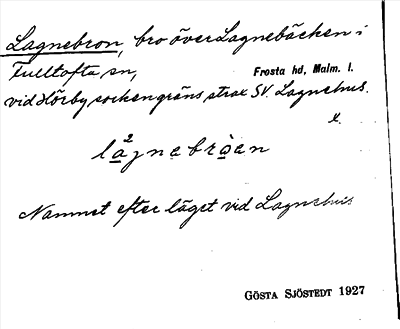 Lagnebron, bro över Lagnebäcken i
Fulltofta sn,
Frosta hd, Malm. l.
vid Hörby sockengräns strax SV. Lagnehus.
lågnebroen
Namnet efter läget vid Lagnehus
GÖSTA SJÖSTEDT 1927